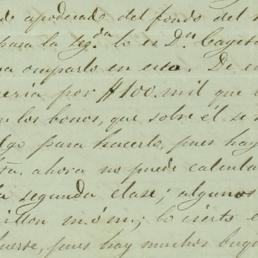 de apoderado del fondo del
para la Seg.da lo es D.n Cayet
para ocuparlo en esta. De
ería por $100. mil que
los bonos, que sobre él se
algo para hacerlo, pues hay
ta. ahora no puede calcula
la segunda clase; algunos
illon m.s m.s; lo cierto e
fuerte, pues hay muchos buqu